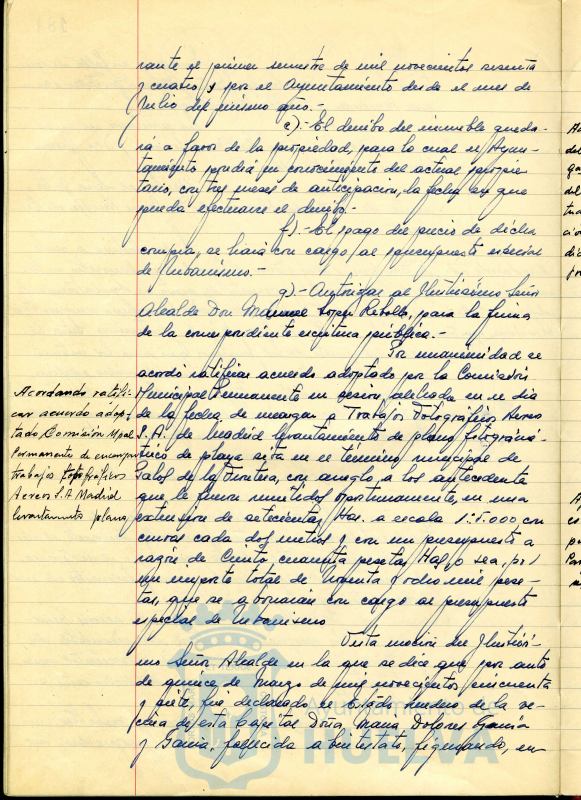 rante el primer semestre de mil novecientos sesenta
y cuatro y por el Ayuntamiento desde el mes de
Julio del mismo año.-
e).- El derribo del inmueble queda-
rá a favor de la propiedad, para lo cual el Ayun-
tamiento pondrá en conocimiento del actual propie-
tario, con tres meses de anticipación, la fecha en que
pueda efectuarse el derribo.-
f).- El pago del precio de dicha
compra, se hará con cargo al presupuesto especial
de Urbanismo.-
g).- Autorizar al Ilustrísimo Señor
Alcalde Don Manuel López Rebollo, para la firma
de la correspondiente escritura pública.-
Por unanimidad se
acordó ratificar acuerdo adoptado por la Comisión
Municipal Permanente en sesión celebrada en el día
de la fecha de encargar a Trabajos Fotográficos Aereos
S.A. de Madrid levantamiento de plano fotogramé-
trico de playa sita en el término municipal de
Palos de la Frontera, con arreglo a los antecedentes
que le fueron remitidos oportunamente, en una
extensión de setecientas Has. a escala 1:5.000, con
curvas cada dos metros y con un presupuesto a
razón de Ciento cuarenta pesetas Has, o sea, por
un importe total de Noventa y ocho mil pese-
tas, que se abonarán con cargo al presupuesto
especial de Urbanismo
Vista moción del Ilustrísi-
mo Señor Alcalde en la que se dice que por auto
de quince de Marzo de mil novecientos cincuenta
y siete, fué declarado el Estado heredero de la ve-
cina de esta Capital Doña María Dolores García
y García, fallecida abintestato, figurando, en-
Acordando ratifi-
car acuerdo adop-
tado Comisión Mpal
Permanente de encargar
trabajos fotográficos
Aereos S.A Madrid
levantamiento plano
Ayuntamiento de
HUELVA